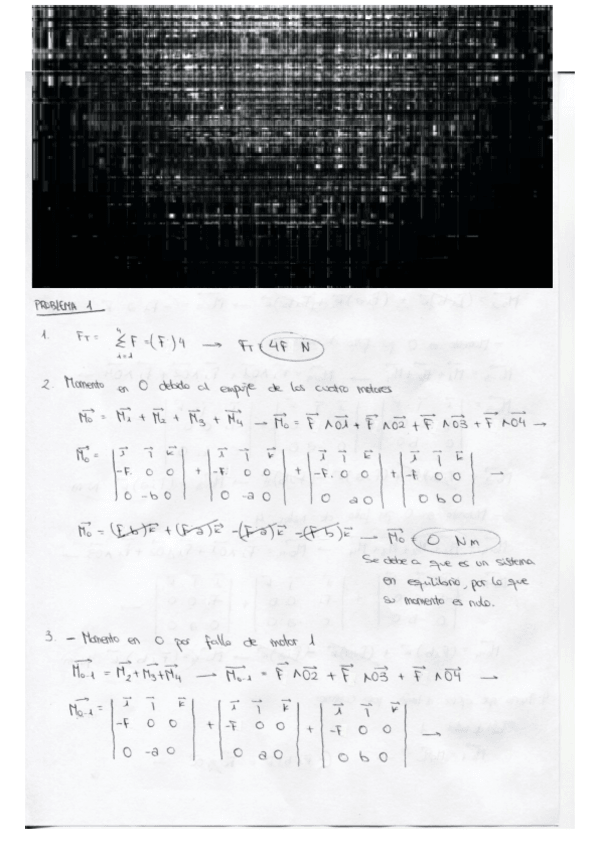 PROBLEMA 1
1. F_T = \sum_{i=1}^{4} F = (F) 4 → F_T = 4F N
2. Momento en O debido al empuje de los cuatro motores
\vec{M_0} = \vec{M_1} + \vec{M_2} + \vec{M_3} + \vec{M_4} → \vec{M_0} = \vec{F} ∧ \vec{O1} + \vec{F} ∧ \vec{O2} + \vec{F} ∧ \vec{O3} + \vec{F} ∧ \vec{O4} →
\vec{M_0} = | \vec{i} \vec{j} \vec{k} | + | \vec{i} \vec{j} \vec{k} | + | \vec{i} \vec{j} \vec{k} | + | \vec{i} \vec{j} \vec{k} |
| -F 0 0 | | -F 0 0 | | -F 0 0 | | -F 0 0 | →
| 0 -b 0 | | 0 -a 0 | | 0 a 0 | | 0 b 0 |
\vec{M_0} = (F b)\vec{k} + (F a)\vec{k} - (F a)\vec{k} - (F b)\vec{k} → \vec{M_0} = 0 Nm
Se debe a que es un sistema
en equilibrio, por lo que
su momento es nulo.
3. - Momento en O por fallo de motor 1
\vec{M_{0-1}} = \vec{M_2} + \vec{M_3} + \vec{M_4} → \vec{M_{0-1}} = \vec{F} ∧ \vec{O2} + \vec{F} ∧ \vec{O3} + \vec{F} ∧ \vec{O4} →
\vec{M_{0-1}} = | \vec{i} \vec{j} \vec{k} | + | \vec{i} \vec{j} \vec{k} | + | \vec{i} \vec{j} \vec{k} |
| -F 0 0 | | -F 0 0 | | -F 0 0 | →
| 0 -a 0 | | 0 a 0 | | 0 b 0 |